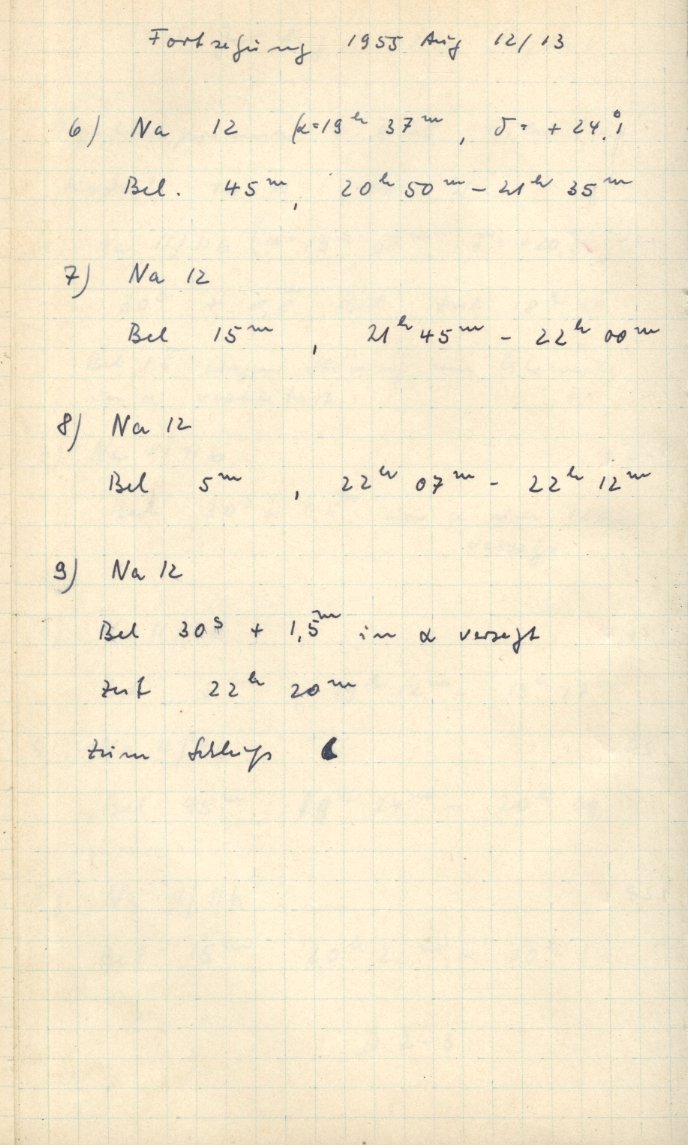 Fortsetzung 1955 Aug 12/13
6) Na 12 (α=19ʰ 37ᵐ, δ= +24.°1
Bel. 45ᵐ, 20ʰ 50ᵐ – 21ʰ 35ᵐ
7) Na 12
Bel 15ᵐ, 21ʰ 45ᵐ – 22ʰ 00ᵐ
8) Na 12
Bel 5ᵐ, 22ʰ 07ᵐ – 22ʰ 12ᵐ
9) Na 12
Bel 30ˢ + 1,5ᵐ in α versetzt
Zeit 22ʰ 20ᵐ
Zum Schluß ☾